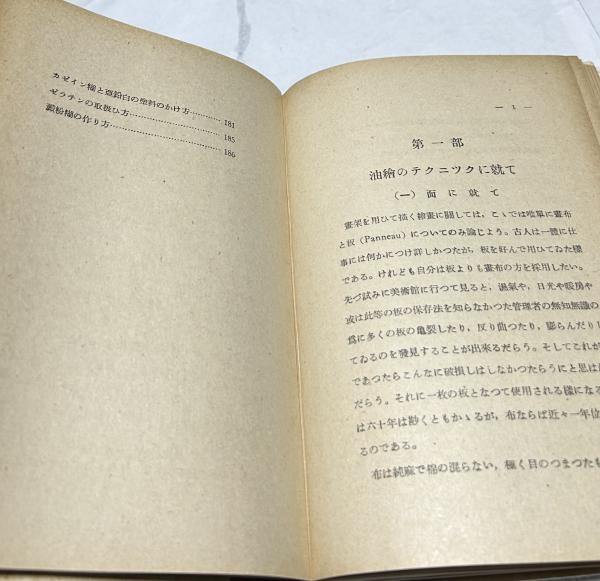 カゼイン糊と亞鉛白の塗料のかけ方…………181
ゼラチンの取扱ひ方…………………………185
澱粉糊の作り方………………………………186
— 1 —
第一部
油繪のテクニツクに就て
(一) 面に就て
畫架を用ひて描く繪畫に關しては、こゝでは唯單に畫布
と板 (Panneau) についてのみ論じよう。古人は一體に仕
事には何かにつけ詳しかつたが、板を好んで用ひてゐた樣
である。けれども自分は板よりも畫布の方を採用したい。
先づ試みに美術館に行つて見ると、濕氣や、日光や暖房や
或は此等の板の保存法を知らなかつた管理者の無知無識の
爲に多くの板の龜裂したり、反り曲つたり、膨らんだりし
てゐるのを發見することが出來るだらう。そしてこれが
であつたらこんなに破損しはしなかつたらうにと思は
だらう。それに一枚の板となつて使用される樣になる
は六十年は尠くともかゝるが、布ならば近々一年位
るのである。
布は純麻で棉の混らない、極く目のつまつたも